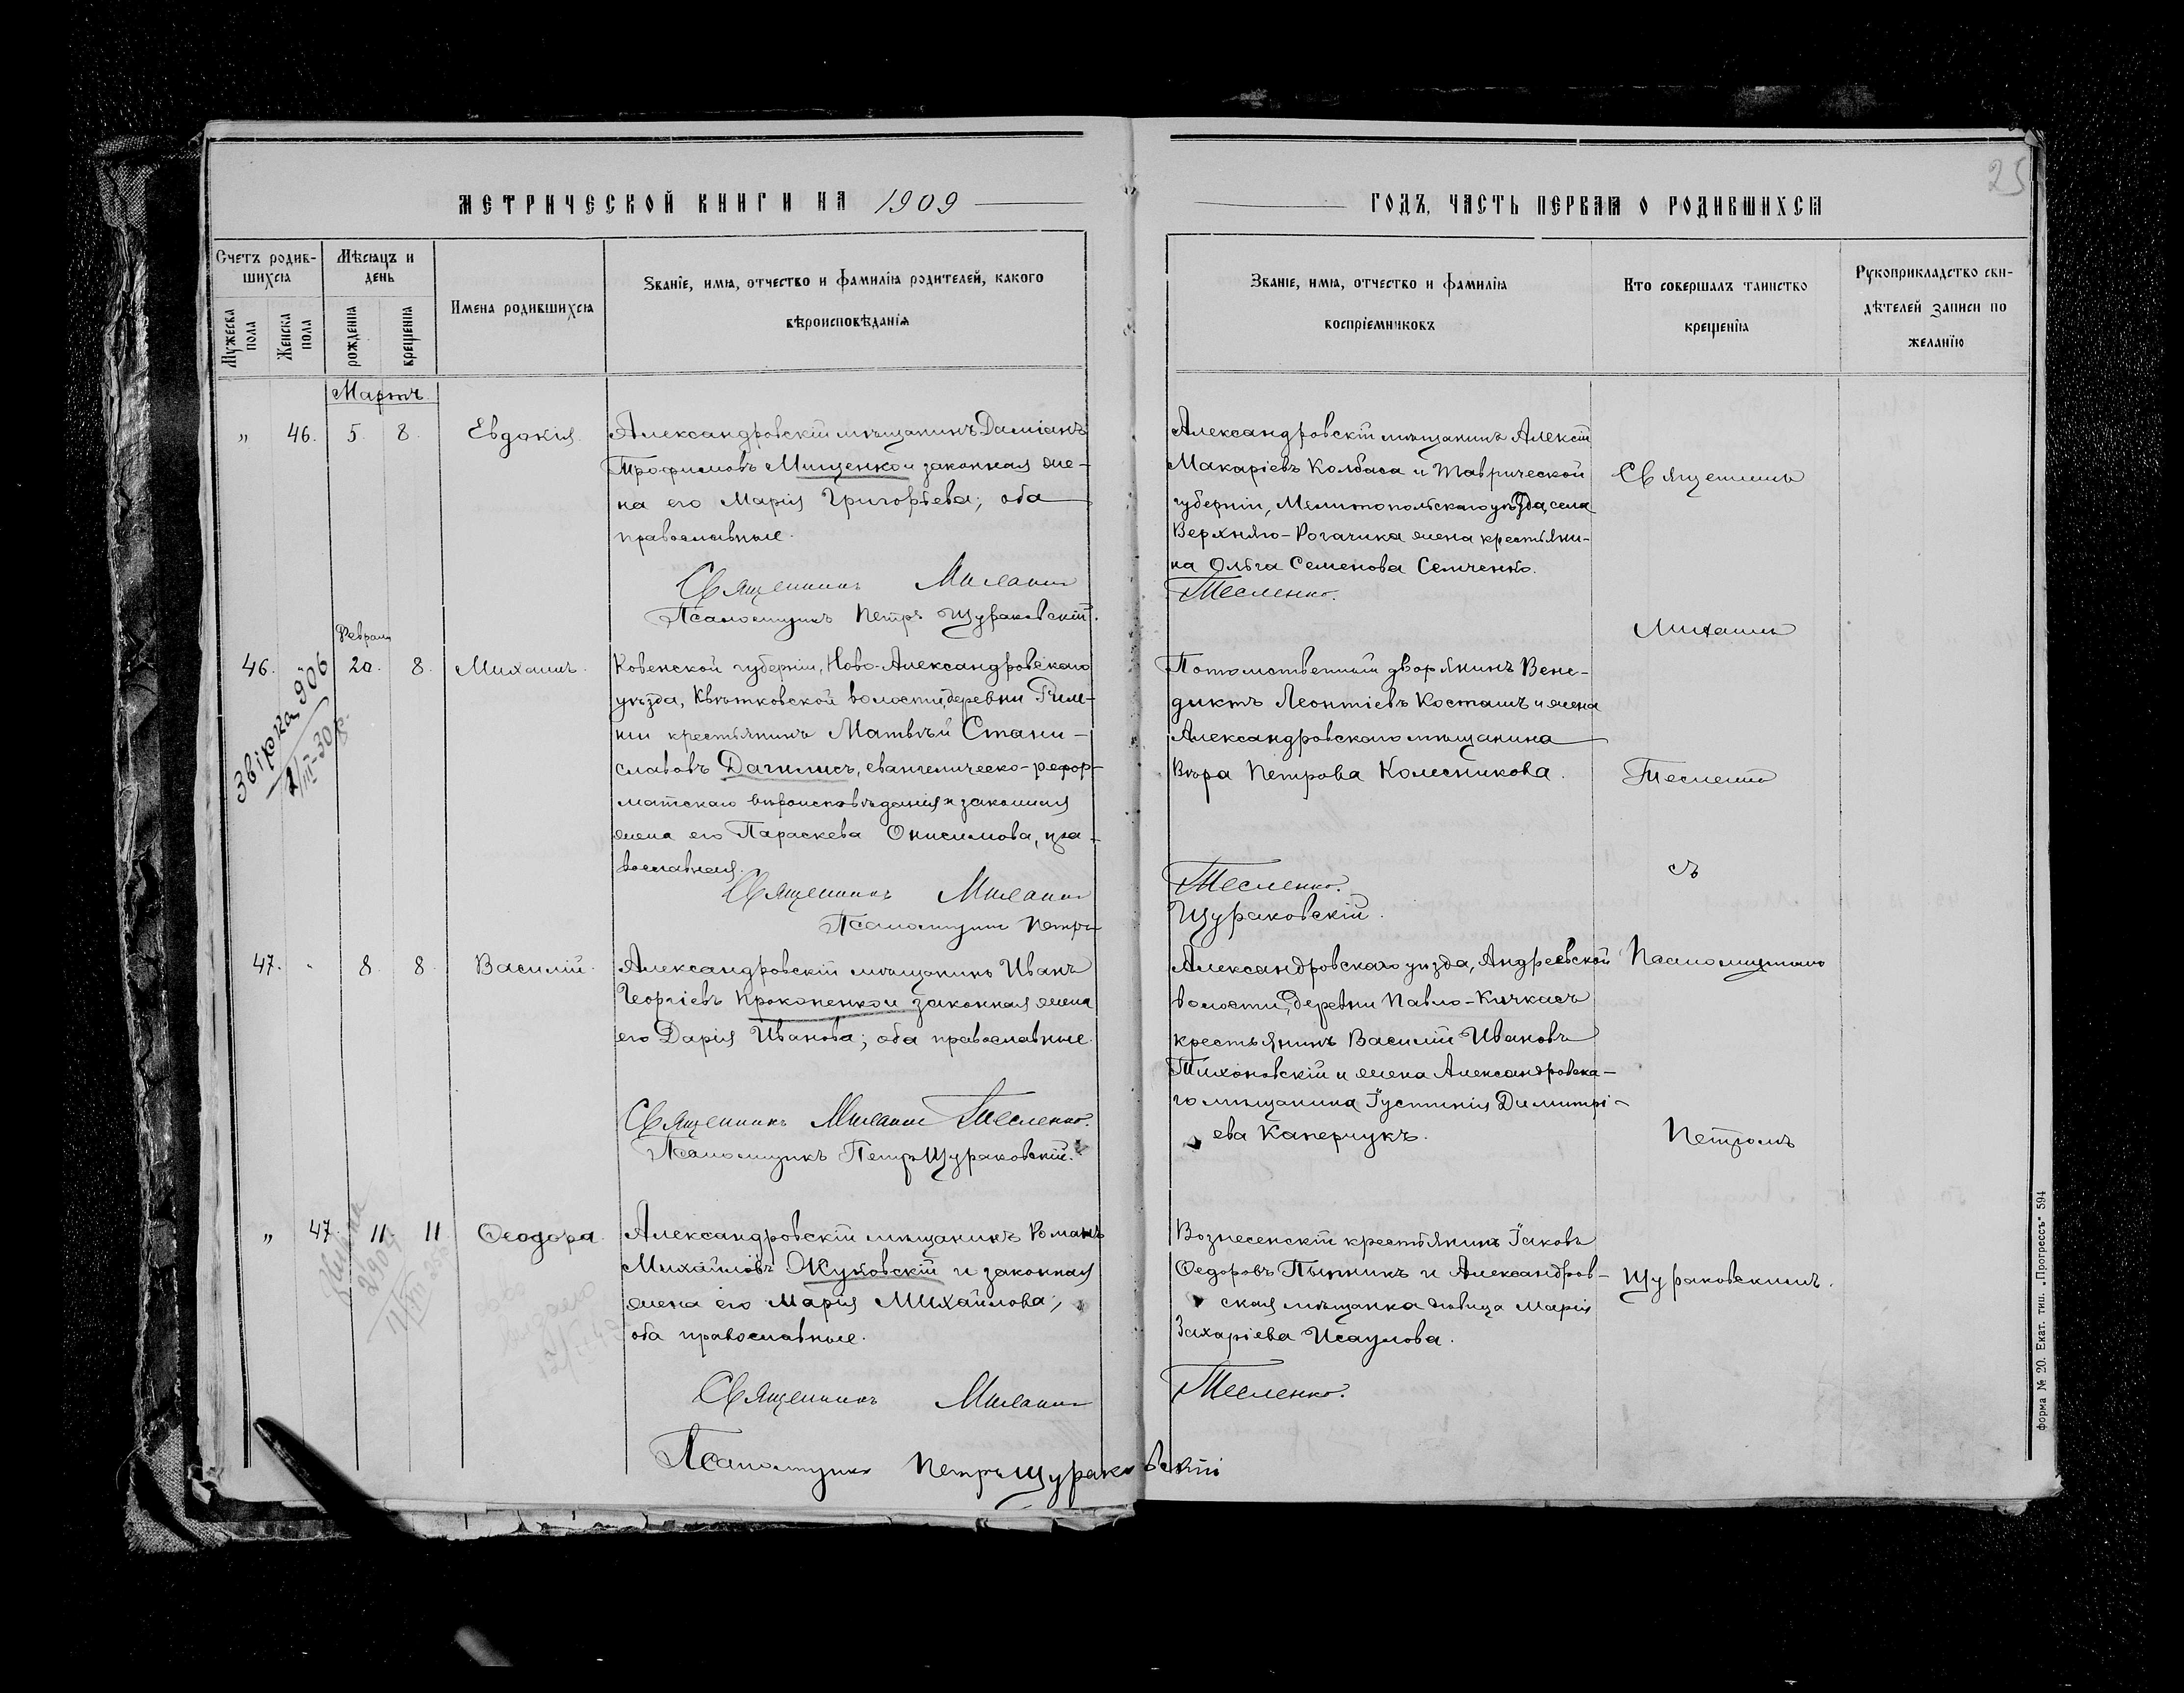 25
МЕТРИЧЕСКОЙ КНИГИ НА 1909
ГОДЪ, ЧАСТЬ ПЕРВАЯ О РОДИВШИХСЯ
Счетъ родив-
шихся
Мужеска
пола
Женска
пола
Мѣсяцъ и
день
рожденія
крещенія
Имена родившихся
Званіе, имя, отчество и фамилія родителей, какого
вѣроисповѣданія
Званіе, имя, отчество и фамилія
воспріемниковъ
Кто совершалъ таинство
крещенія
Рукоприкладство сви-
дѣтелей записи по
желанію
Мартъ
" 46. 5. 8. Евдокія.
Александровскій мѣщанинъ Даміанъ
Трофимовъ Мищенко и законная же-
на его Марія Григорьева; оба
православные.
Священникъ Михаилъ
Псаломщикъ Петръ Щураковскій.
Александровскій мѣщанинъ Алексій
Макаріевъ Колбаса и Таврической
губерніи, Мелитопольскаго уѣзда, села
Верхняго-Рогачика жена крестьяни-
на Ольга Семенова Семченко.
Тесленко.
Священникъ
Михаилъ
Февраля
46. 20. 8. Михаилъ.
звірка 906
2/III-30р.
Ковенской губерніи, Ново-Александровскаго
уѣзда, Квѣтковской волости, деревни Гим-
ни крестьянинъ Матвѣй Стани-
славовъ Дагилисъ, евангелическо-рефор-
матскаго вѣроисповѣданія и законная
жена его Параскева Онисимова, пра-
вославная.
Священникъ Михаилъ
Псаломщикъ Петръ
Потомственный дворянинъ Вене-
диктъ Леонтіевъ Косташъ и жена
Александровскаго мѣщанина
Вѣра Петрова Колесникова.
Тесленко.
Щураковскій.
Тесленко
съ
47. " 8. 8. Василій.
Александровскій мѣщанинъ Иванъ
Георгіевъ Прокопенко и законная жена
его Дарія Иванова; оба православные.
Священникъ Михаилъ Тесленко.
Псаломщикъ Петръ Щураковскій.
Александровскаго уѣзда, Андреевской
волости, деревни Павло-Кичкасъ
крестьянинъ Василій Ивановъ
Тихоновскій и жена Александровска-
го мѣщанина Іустинія Димитрі-
ева Каперчукъ.
Псаломщикомъ
Петромъ
" 47. 11 11 Ѳеодора.
Александровскій мѣщанинъ Романъ
Михайловъ Жуковскій и законная
жена его Марія Михайлова;
оба православные.
Священникъ Михаилъ
Псаломщикъ Петръ Щураковскій
Вознесенскій крестьянинъ Іаковъ
Ѳедоровъ Пынникъ и Александров-
ская мѣщанка дѣвица Марія
Захаріева Исаулова.
Тесленко.
Щураковскимъ.
Форма № 20. Екат. тип. „Прогрессъ“ 594